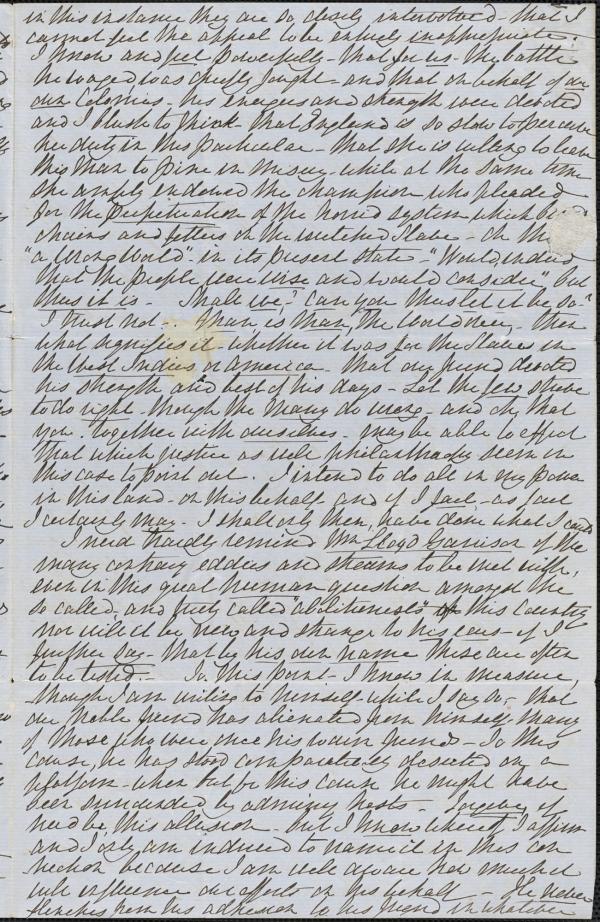 in this instance they are so closely interwoved - that I
cannot feel the appeal to be entirely inappropriate.
I know and feel powerfully - that for us - the battle
he waged was chiefly fought - and that on behalf of our
own Colonies - his energies and strength were devoted
and I blush to think that England is so slow to perceive
her duty in this particular - that she is willing to leave
this Man to pine in misery - while at the same time
she amply endowed the champion who pleaded
for the Perpetuation of the horrid system which
chains and fetters on the wretched Slave - Oh this
"a wrong World" - in its present state - "Would indeed
that the People were wise and would consider" but
thus it is - Shall we? Can you thus let it be so?
I trust not. - Man is Man, the World over, - then
what signifies it whether it was for the Slave in
the West Indies or America - that our friend devoted
his strength and best of his days - Let the few strive
to do right - though the many do wrong - and oh, that
you, together with ourselves - may be able to effect
that which justice as well philanthropy seem in
this case to point out. I intend to do all in my power
in this land - on this behalf and if I fail - as fail
I certainly may - I shall only then, have done what I could
I need hardly remind Wm Lloyd Garrison of the
many contrary eddies and streams to be met with,
even in this great human question amongst the
so called - and truly called "abolitionists" of this Country
nor will it be new and strange to his ears - if I
further say - that by his own name these are often
to be tested. - To this point - I know in measure,
though I am writing to himself while I say so - that
our noble friend has alienated from himself many
of those who were once his warm friends - In this
cause, he has stood comparatively deserted on a
platform - when but for this cause he might have
been surrounded by admiring hosts - forgive if
need be this allusion - but I know whereof I affirm
and I only am induced to name it in this con
nection because I am well aware how much it
will influence our efforts on his behalf - He never
flinches from his adhesion to his views in whatever